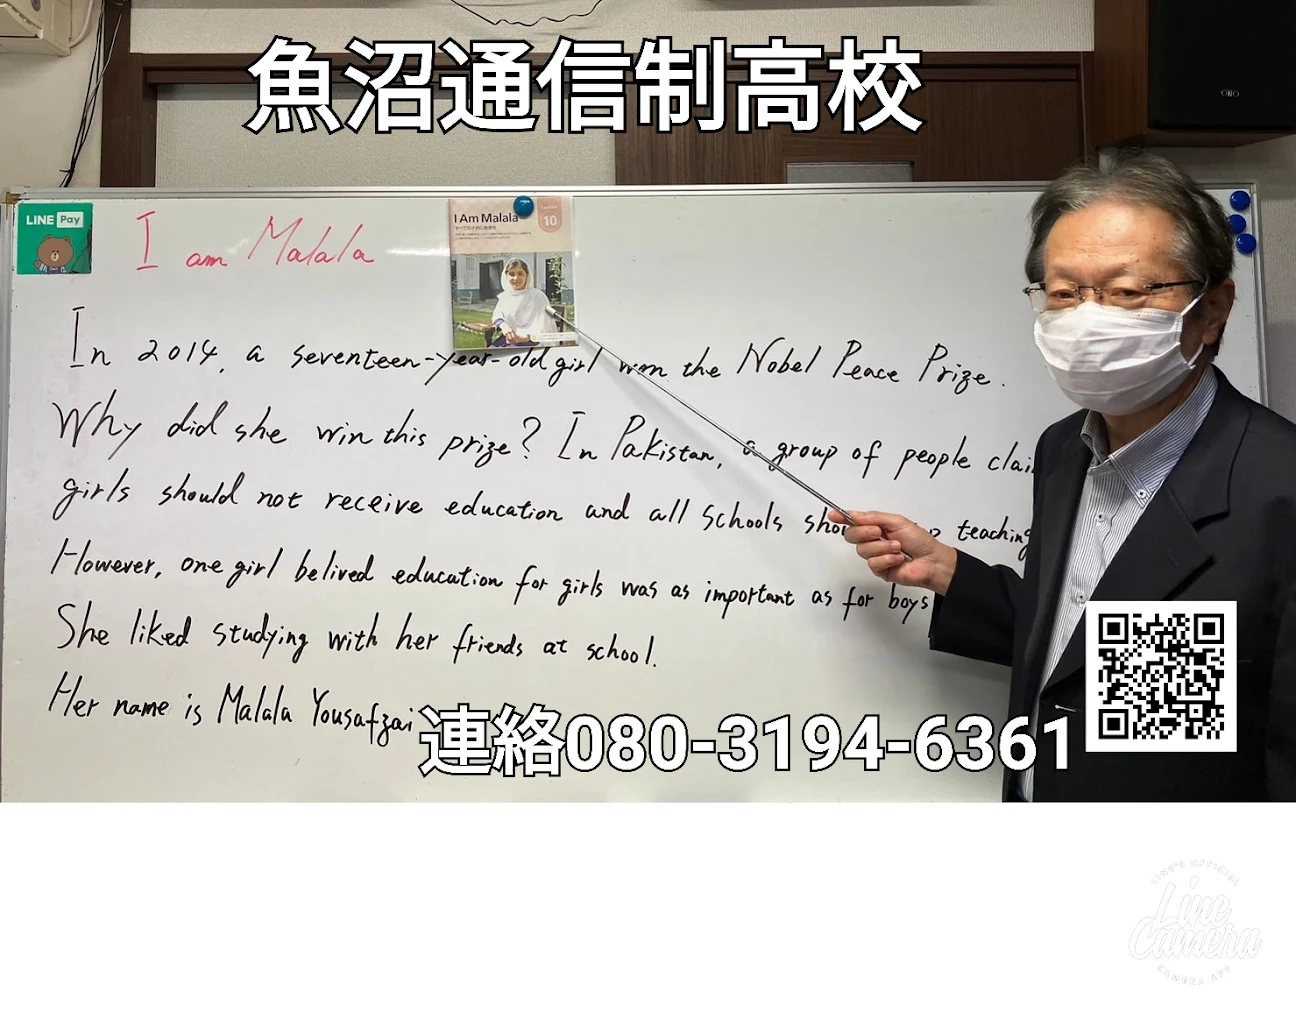 魚沼通信制高校
LINE Pay
I am Malala
I Am Malala
Lesson
10
すべての子供に教育を
In 2014, a seventeen-year-old girl won the Nobel Peace Prize.
Why did she win this prize? In Pakistan, a group of people clai
girls should not receive education and all schools sho teaching
However, one girl belived education for girls was as important as for boys
She liked studying with her friends at school.
Her name is Malala Yousafzai
連絡080-3194-6361
LINE'S OFFICIAL
Line
Camera
CAMERA APP